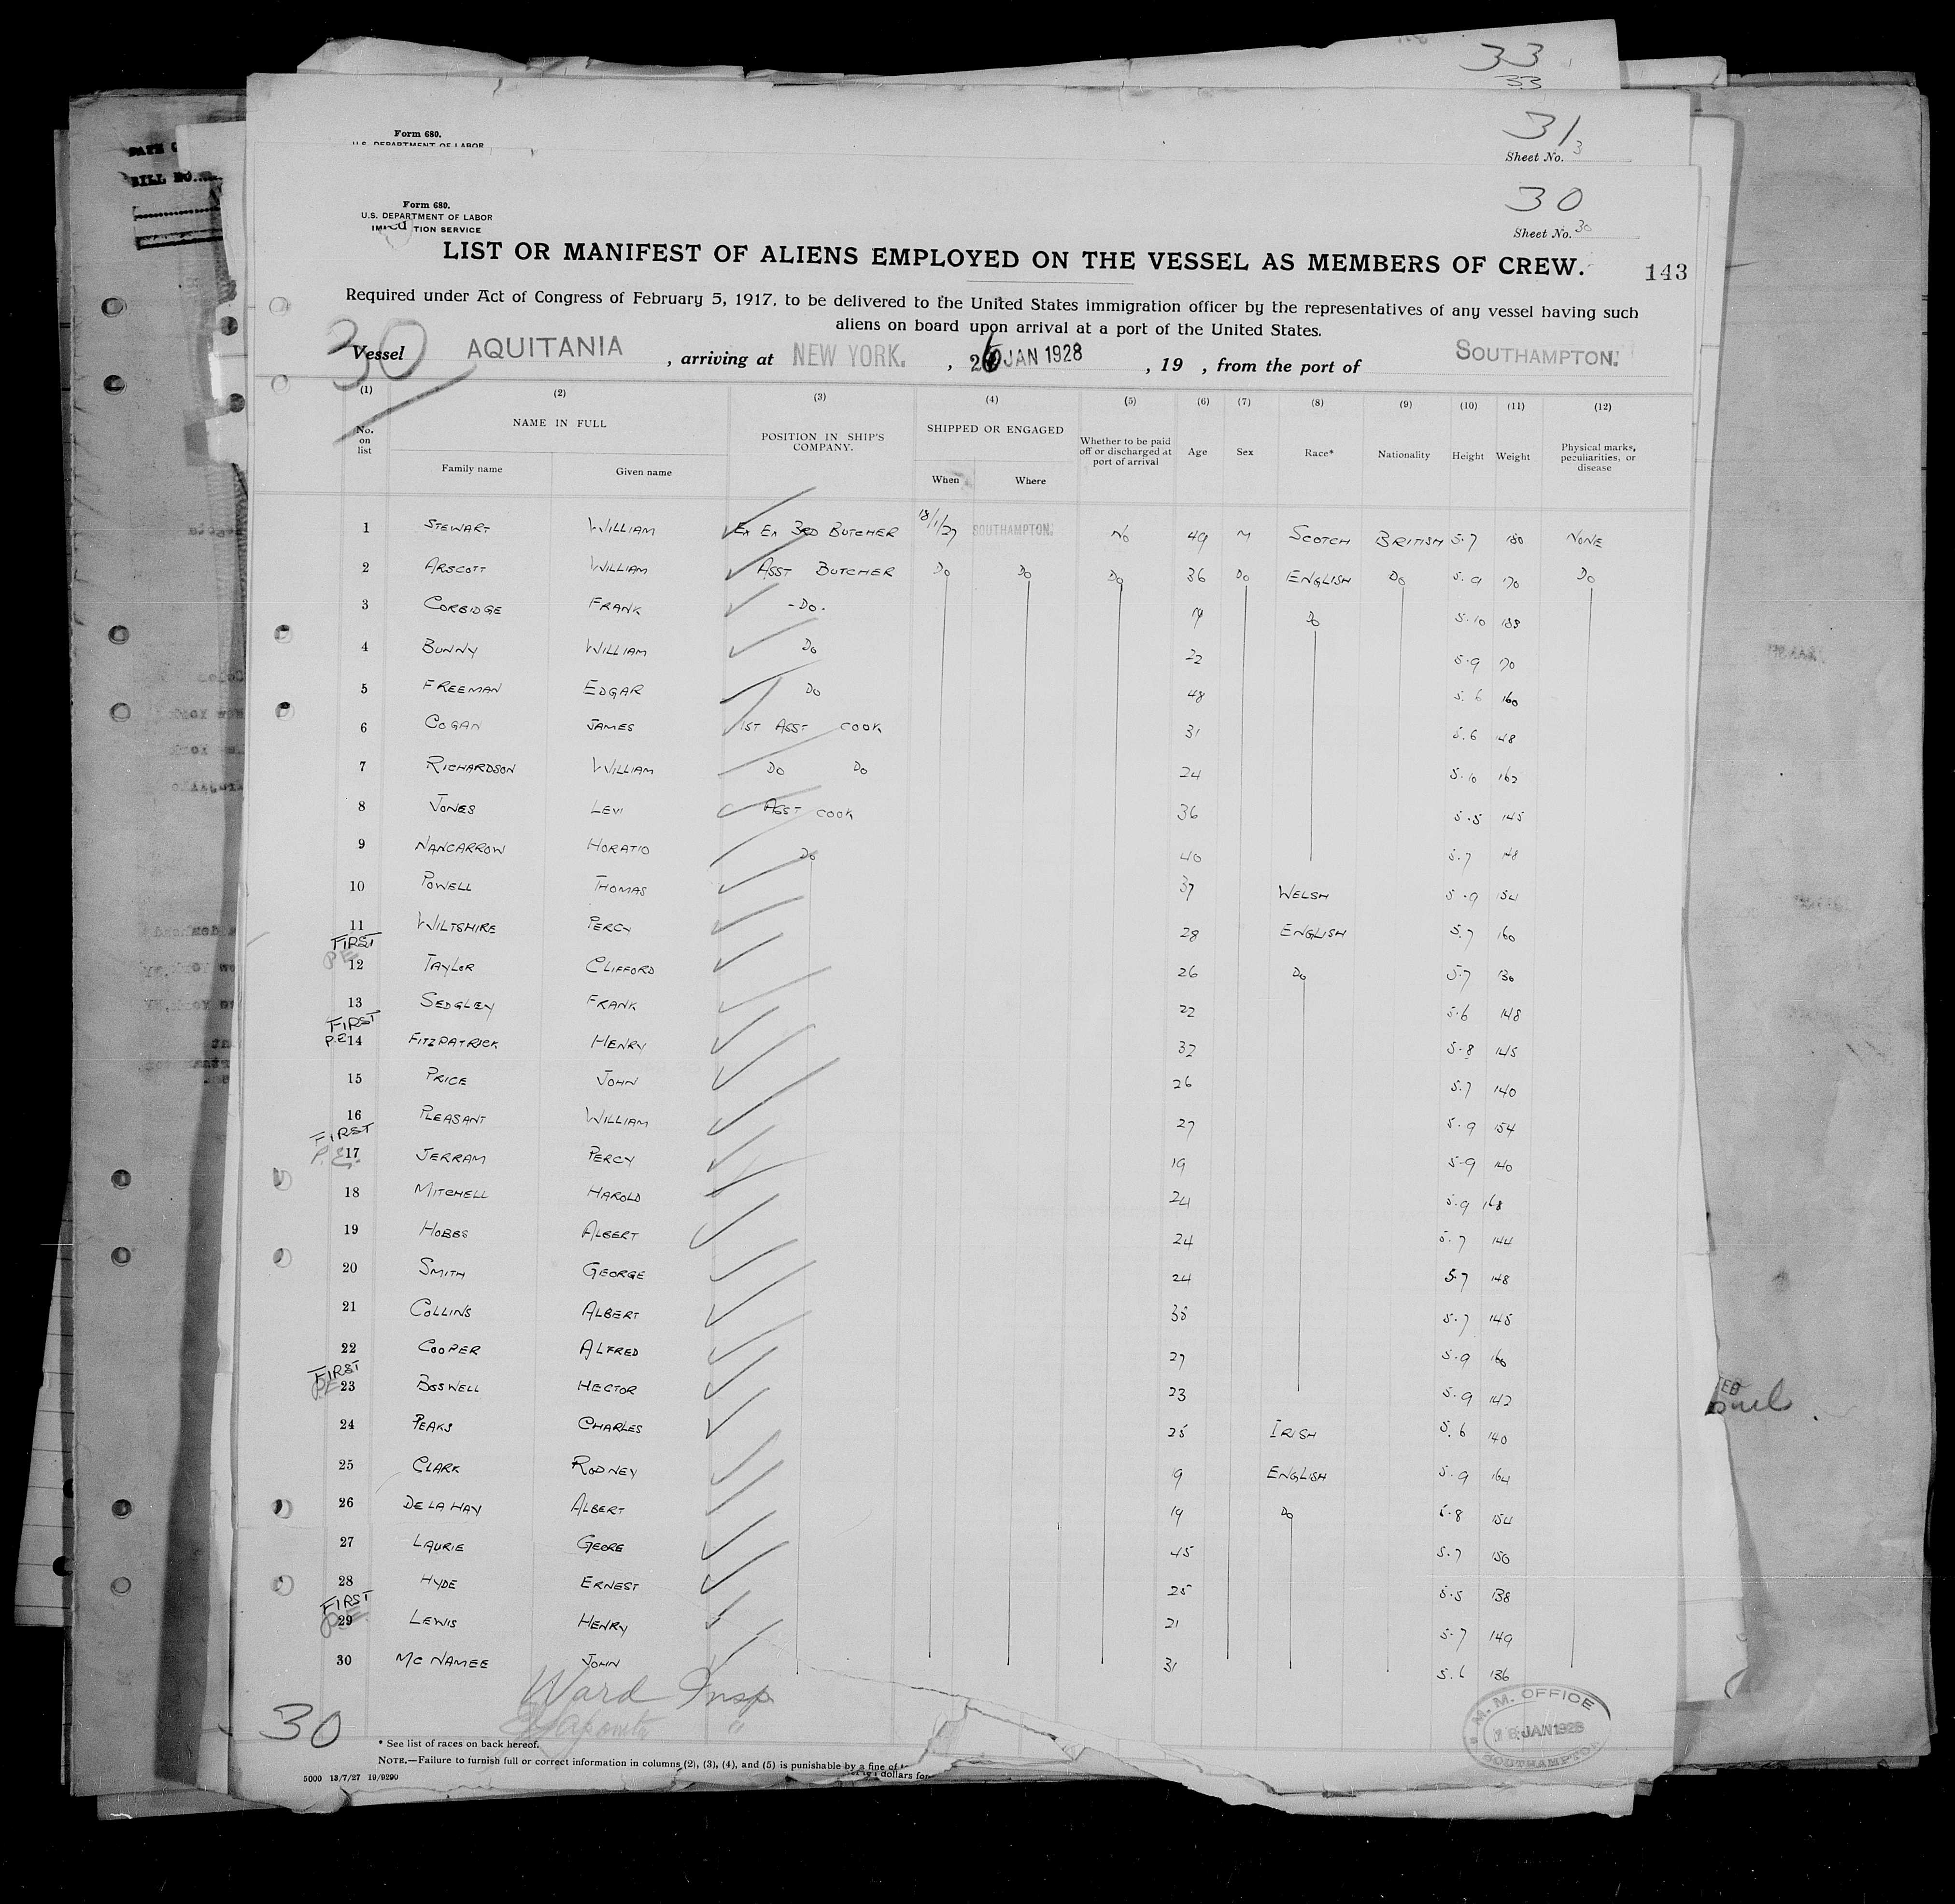 33
33
31
Form 680.
U.S. DEPARTMENT OF LABOR
Sheet No. 3
30
Form 680.
U.S. DEPARTMENT OF LABOR
TION SERVICE
Sheet No. 30
LIST OR MANIFEST OF ALIENS EMPLOYED ON THE VESSEL AS MEMBERS OF CREW.
143
Required under Act of Congress of February 5, 1917, to be delivered to the United States immigration officer by the representatives of any vessel having such
aliens on board upon arrival at a port of the United States.
30
Vessel AQUITANIA , arriving at NEW YORK. , 26 JAN 1928 , 19 , from the port of SOUTHAMPTON.
(1) (2) (3) (4) (5) (6) (7) (8) (9) (10) (11) (12)
No. on list NAME IN FULL POSITION IN SHIP'S COMPANY. SHIPPED OR ENGAGED Whether to be paid off or discharged at port of arrival Age Sex Race* Nationality Height Weight Physical marks, peculiarities, or disease
Family name Given name When Where
1 STEWART WILLIAM Ex Ex 3RD BUTCHER 18/1/27 SOUTHAMPTON. No 49 M SCOTCH BRITISH 5.7 180 NONE
2 ARSCOTT WILLIAM ASST BUTCHER Do Do Do 36 Do ENGLISH Do 5.9 170 Do
3 CORBIDGE FRANK -Do. Do 5.10 188
4 BUNNY WILLIAM Do 22 5.9 170
5 FREEMAN EDGAR Do 48 5.6 160
6 COGAN JAMES 1ST ASST COOK 31 5.6 148
7 RICHARDSON WILLIAM Do Do 24 5.10 162
8 JONES LEVI ASST COOK 36 5.5 145
9 NANCARROW HORATIO Do 40 5.7 148
10 POWELL THOMAS 37 WELSH 5.9 154
11 WILTSHIRE PERCY 28 ENGLISH 5.7 160
FIRST
P.E. 12 TAYLOR CLIFFORD 26 Do 5.7 130
13 SEDGLEY FRANK 22 5.6 148
FIRST
P.E. 14 FITZPATRICK HENRY 32 5.8 145
15 PRICE JOHN 26 5.7 140
16 PLEASANT WILLIAM 27 5.9 154
FIRST
P.E. 17 JERRAM PERCY 19 5.9 140
18 MITCHELL HAROLD 24 5.9 168
19 HOBBS ALBERT 24 5.7 144
20 SMITH GEORGE 24 5.7 148
21 COLLINS ALBERT 38 5.7 145
22 COOPER ALFRED 27 5.9 160
FIRST
P.E. 23 BOSWELL HECTOR 23 5.9 142
24 PEAKS CHARLES 25 IRISH 5.6 140
25 CLARK RODNEY 19 ENGLISH 5.9 164
26 DE LA HAY ALBERT 19 Do 5.8 154
27 LAURIE GEORE 45 5.7 150
28 HYDE ERNEST 25 5.5 138
FIRST
P.E. 29 LEWIS HENRY 21 5.7 149
30 MC NAMEE JOHN 31 5.6 136
Ward Insp
"
30
M. M. OFFICE
JAN 1928
SOUTHAMPTON
* See list of races on back hereof.
NOTE.—Failure to furnish full or correct information in columns (2), (3), (4), and (5) is punishable by a fine of
dollars for
5000 13/7/27 19/9290